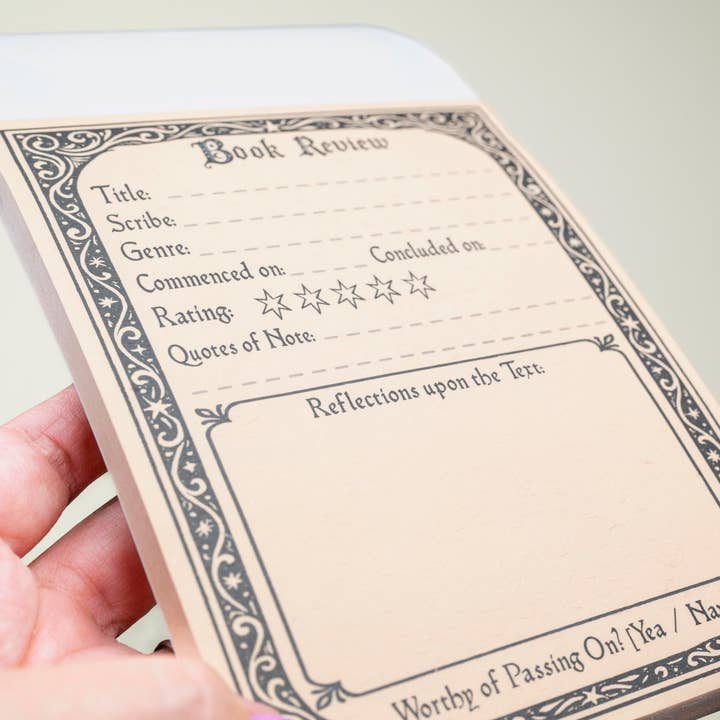 Book Review
Title:
Scribe:
Genre:
Commenced on: Concluded on:
Rating:
Quotes of Note:
Reflections upon the Text:
Worthy of Passing On? [Yea /